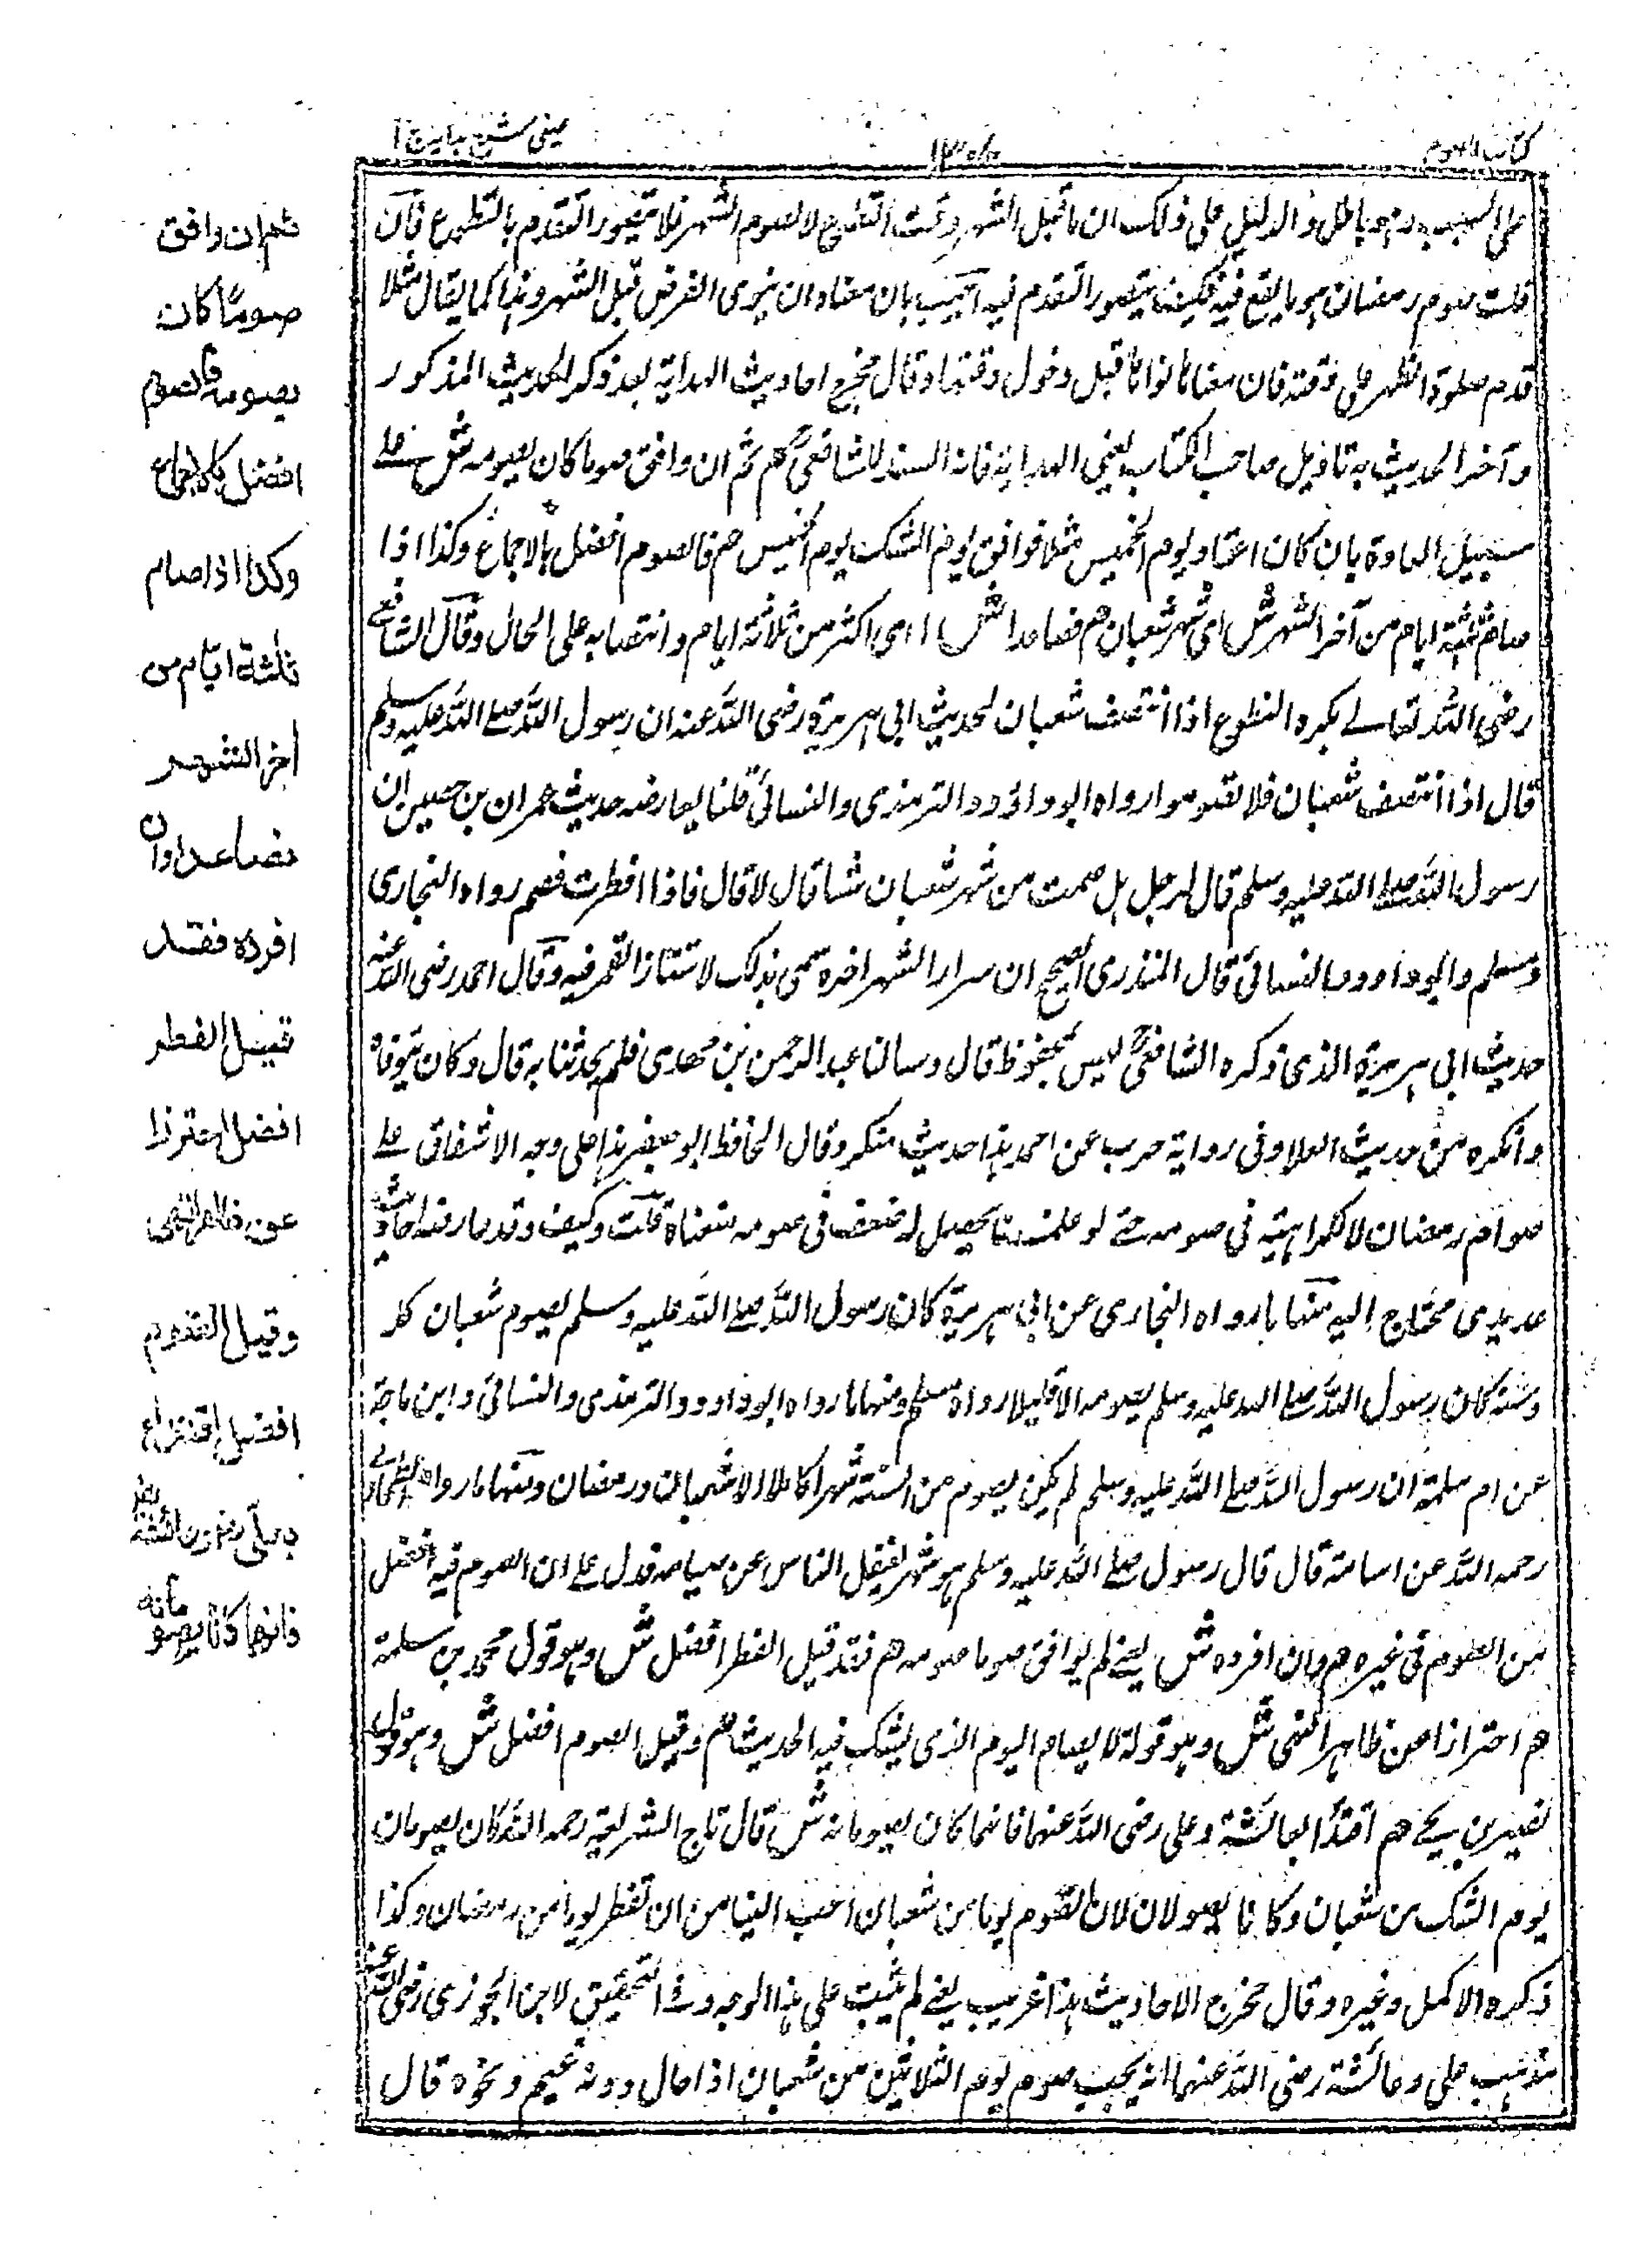 كتاب الصوم
عينى شرح هداية ج ١
السبب وهو باطل والدليل على ذلك ان ما قبل الشهر وقت التطوع لا لصوم الشهر فلا يتصور التقدم بالتطوع فان
قلت صوم رمضان هو ما يقع فيه فكيف يتصور التقدم فيه اجيب بان معناه ان ينوى الفرض قبل الشهر وهذا كما يقال مثلا
قدم صلوة الظهر على وقته فان معناه نواها قبل دخول وقتها وقال مخرج احاديث الهداية بعد ذكر الحديث المذكور
وآخر الحديث به تاويل صاحب الكتاب يعنى الهداية فانه السند للشافعى هم ثم ان وافق صوما كان يصومه ش على
سبيل العادة بان كان اعتاد يوم الخميس مثلا فوافق يوم الشك يوم الخميس هم فالصوم افضل بالاجماع وكذا اذا
صام ثلثة ايام من آخر الشهر ش اى شهر شعبان هم فصاعدا ش اى اكثر من ثلاثة ايام وانتصابه على الحال وقال الشافعى
رضى الله تعالى يكره التطوع اذا انتصف شعبان لحديث ابى هريرة رضى الله عنه ان رسول الله صلى الله عليه وسلم
قال اذا انتصف شعبان فلا تصوموا رواه ابو داؤد والترمذى والنسائى قلنا يعارضه حديث عمران بن حصين ان
رسول الله صلى الله عليه وسلم قال لرجل هل صمت من شهر شعبان شيا قال لا قال فاذا افطرت فصم رواه البخارى
ومسلم وابو داود والنسائى قال المنذرى الصحيح ان سرار الشهر اخره سمى بذلك لاستتار القمر فيه وقال احمد رضى الله عنه
حديث ابى هريرة الذى ذكره الشافعى ليس بمحفوظ قال وسالنا عبد الرحمن بن مهدى فلم يحدثنا به قال وكان يتوقاه
وانكره من حديث العلا وفى رواية حرب عن احمد هذا حديث منكر وقال الحافظ ابو جعفر هذا على وجه الاشفاق على
صوام رمضان لا لكراهية فى صومه حتى لو علمنا يحصل له ضعف فى صومه منعناه قلت وكيف وقد عارضه احاديث
محتاج اليه منها ما رواه البخارى عن ابى هريرة كان رسول الله صلى الله عليه وسلم يصوم شعبان كله
ومنه كان رسول الله صلى الله عليه وسلم يصومه الا قليلا رواه مسلم ومنها ما رواه ابو داود والترمذى والنسائى وابن ماجة
عن ام سلمة ان رسول الله صلى الله عليه وسلم لم يكن يصوم من السنة شهرا كاملا الا شعبان ورمضان ومنها ما رواه الطحاوى
رحمه الله عن اسامة قال قال رسول صلى الله عليه وسلم هو شهر يغفل الناس عن صيامه فدل على ان الصوم فيه افضل
من الصوم فى غيره هم وان افرده ش يعنى لم يوافق صوما صومه هم فقد قيل الفطر افضل ش وهو قول محمد بن سلمة
هم احترازا عن ظاهر النهى ش وهو قوله لا يصام اليوم الذى يشك فيه الحديث هم وقيل الصوم افضل ش وهو قول
نصير بن يحيى هم اقتداء بعائشة وعلى رضى الله عنهما فانهما كانا يصومانه ش قال تاج الشريعة رحمه الله كان يصومان
يوم الشك من شعبان وكانا يقولان لان نصوم يوما من شعبان احب الينا من ان نفطر يوما من رمضان وكذا
ذكره الاكمل وغيره وقال مخرج الاحاديث هذا غريب يعنى لم يثبت على هذا الوجه وفى التحقيق لابن الجوزى رضى الله عنه
مذهب على وعائشة رضى الله عنهما انه يجب صوم يوم الثلاثين من شعبان اذا حال دونه غيم ونحوه قال
ثم ان وافق
صوما كان
يصومه فالصوم
افضل بالاجماع
وكذا اذا صام
ثلثة ايام من
اخر الشهر
فصاعدا وان
افرده فقد
قيل الفطر
افضل احترازا
عن ظاهر النهى
وقيل الصوم
افضل اقتداء
بعلى وعائشة
فانهما كانا يصومانه